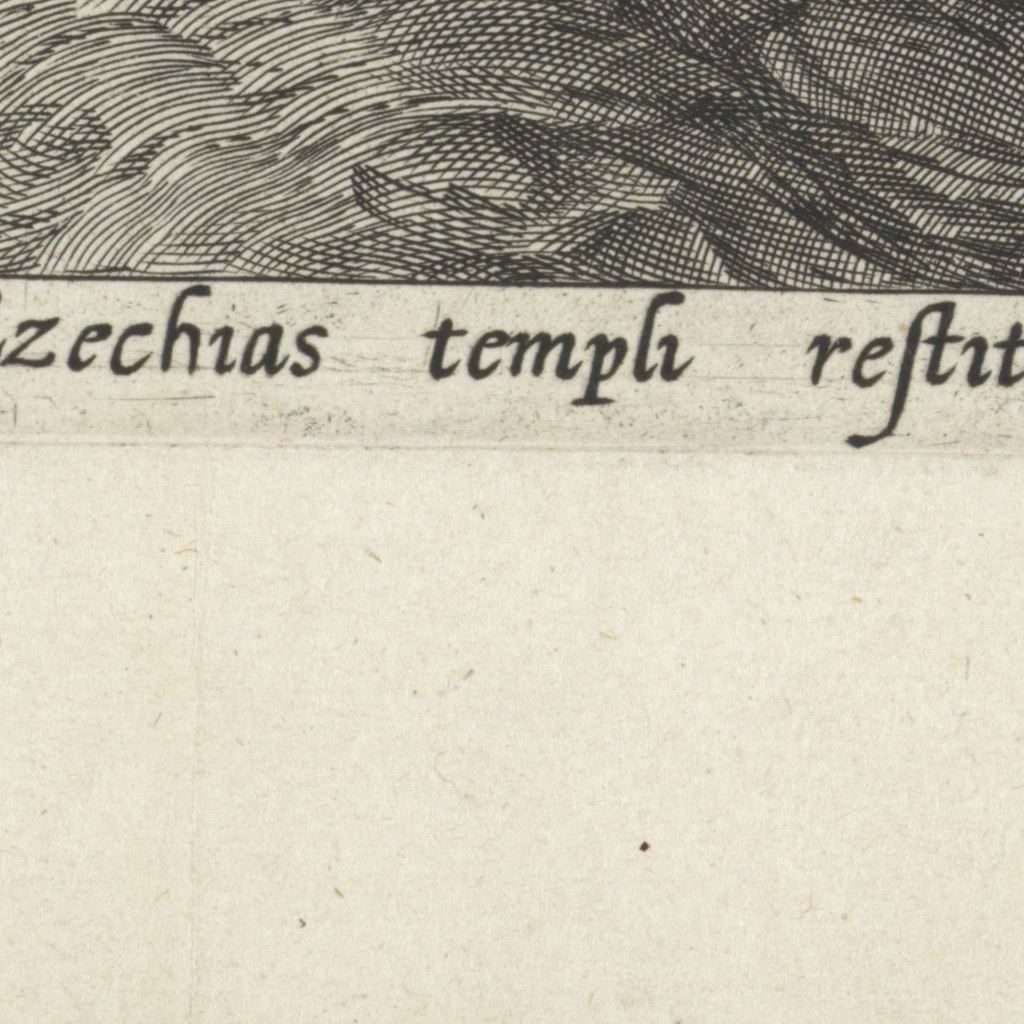 zechias templi reſtit